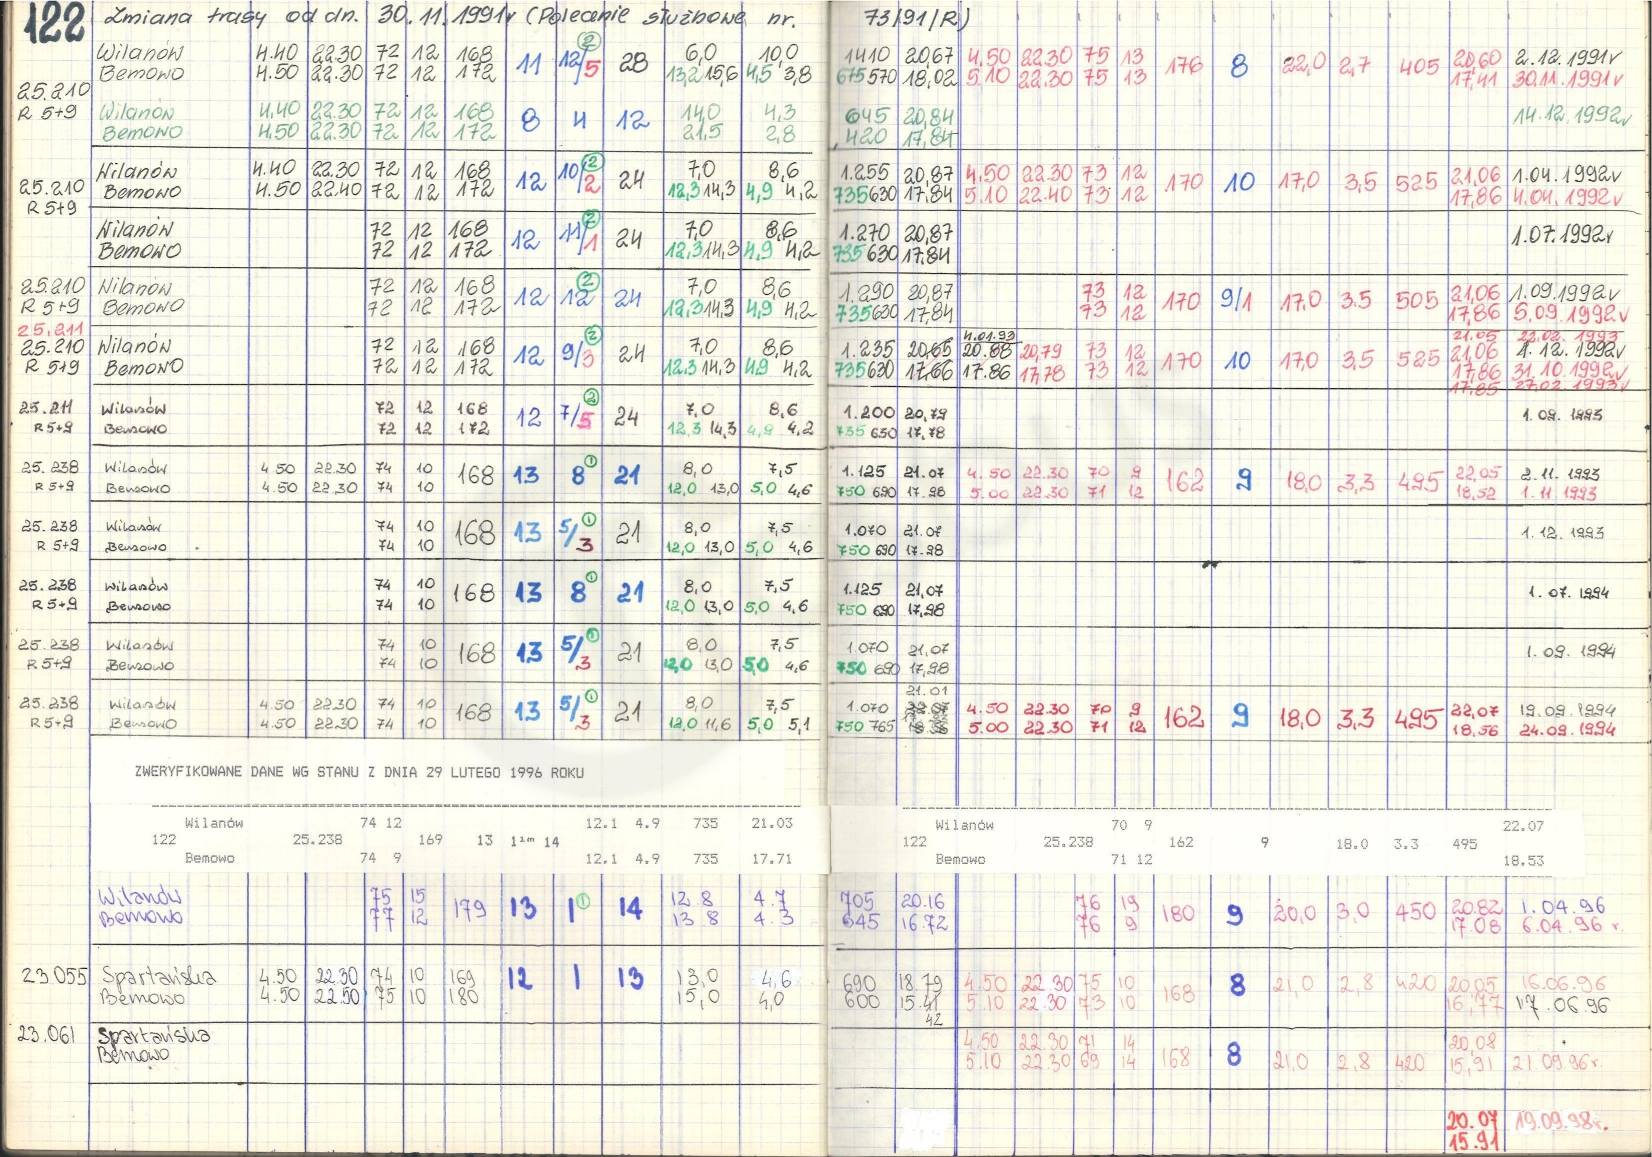 122 Zmiana trasy od dn. 30.11.1991r (Polecenie służbowe nr. 73/91/R)
Wilanów 4.40 22.30 72 12 168 11 12/5 (2) 28 6,0 10,0 1410 20,67 4,50 22.30 75 13 176 8 22,0 2,7 405 20,60 2.12.1991r
Bemowo 4.50 22.30 72 12 172 13,2 15,6 4,5 3,8 675 570 18,02 5.10 22.30 75 13 17,41 30.11.1991r
25.210
R 5+9
Wilanów 4.40 22.30 72 12 168 8 4 12 14,0 4,3 645 20,84 14.12.1992r
Bemowo 4.50 22.30 72 12 172 21,5 2,8 420 17,84
Wilanów 4.40 22.30 72 12 168 12 10/2 (2) 24 7,0 8,6 1.255 20,87 4,50 22.30 73 12 170 10 17,0 3,5 525 21,06 1.04.1992r
25.210 Bemowo 4.50 22.40 72 12 172 12,3 14,3 4,9 4,2 735 630 17,84 5.10 22.40 73 12 17,86 4.04.1992r
R 5+9
Wilanów 72 12 168 12 11/1 (2) 24 7,0 8,6 1.270 20,87 1.07.1992r
Bemowo 72 12 172 12,3 14,3 4,9 4,2 735 630 17,84
25.210 Wilanów 72 12 168 12 12 (2) 24 7,0 8,6 1.290 20,87 73 12 170 9/1 17,0 3,5 505 21,06 1.09.1992r
R 5+9 Bemowo 72 12 172 12,3 14,3 4,9 4,2 735 630 17,84 73 12 17,86 5.09.1992r
25.211 4.01.93 21.05 22.02.1993
25.210 Wilanów 72 12 168 12 9/3 (2) 24 7,0 8,6 1.235 20,65 20.88 20,79 73 12 170 10 17,0 3,5 525 21,06 1.12.1992r
R 5+9 Bemowo 72 12 172 12,3 14,3 4,9 4,2 735 630 17,66 17.86 17,78 73 12 17,86 31.10.1992r
17,85 27.02.1993r
25.211 Wilanów 72 12 168 12 7/5 (2) 24 7,0 8,6 1.200 20,79 1.09.1993
R 5+9 Bemowo 72 12 172 12,3 14,3 4,9 4,2 735 630 17,78
25.238 Wilanów 4.50 22.30 74 10 168 13 8 (1) 21 8,0 7,5 1.125 21.07 4.50 22.30 70 9 162 9 18,0 3,3 495 22,05 2.11.1993
R 5+9 Bemowo 4.50 22.30 74 10 12,0 13,0 5,0 4,6 750 690 17.98 5.00 22.30 71 12 18,52 1.11.1993
25.238 Wilanów 74 10 168 13 5/3 (1) 21 8,0 7,5 1.070 21.07 1.12.1993
R 5+9 Bemowo 74 10 12,0 13,0 5,0 4,6 750 690 17.98
25.238 Wilanów 74 10 168 13 8 (1) 21 8,0 7,5 1.125 21,07 1.07.1994
R 5+9 Bemowo 74 10 12,0 13,0 5,0 4,6 750 690 17,98
25.238 Wilanów 74 10 168 13 5/3 (1) 21 8,0 7,5 1.070 21,07 1.09.1994
R 5+9 Bemowo 74 10 12,0 13,0 5,0 4,6 750 690 17,98
21.01
25.238 Wilanów 4.50 22.30 74 10 168 13 5/3 (1) 21 8,0 7,5 1.070 4.50 22.30 70 9 162 9 18,0 3,3 495 22,07 19.09.1994
R 5+9 Bemowo 4.50 22.30 74 10 12,0 11,6 5,0 5,1 750 765 5.00 22.30 71 12 18,56 24.09.1994
ZWERYFIKOWANE DANE WG STANU Z DNIA 29 LUTEGO 1996 ROKU
Wilanów 74 12 12.1 4.9 735 21.03 Wilanów 70 9 22.07
122 25.238 169 13 1 14 122 25.238 162 9 18.0 3.3 495
Bemowo 74 9 12.1 4.9 735 17.71 Bemowo 71 12 18.53
Wilanów 75 15 179 13 1 (1) 14 12.8 4.7 705 20.16 76 19 180 9 20,0 3,0 450 20.82 1.04.96
Bemowo 77 12 13 8 4.3 645 16.72 76 9 17.08 6.04.96 r.
23.055 Spartańska 4.50 22.30 74 10 169 12 1 13 13,0 4,6 690 18.79 4.50 22.30 75 10 168 8 21,0 2,8 420 20,05 16.06.96
Bemowo 4.50 22.50 75 10 180 15,0 4,0 600 15.41 5.10 22.30 73 10 16,77 17.06.96
42
23.061 Spartańska 4.50 22.30 71 14 168 8 21,0 2,8 420 20,08
Bemowo 5.10 22.30 69 14 15,91 21.09.96r.
20.07 19.09.98r.
15.91